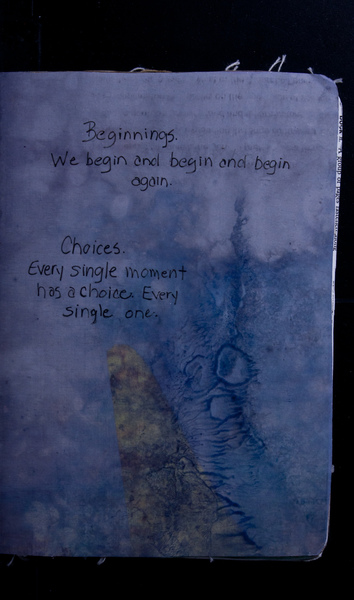 Beginnings.
We begin and begin and begin
again.
Choices.
Every single moment
has a choice. Every
single one.